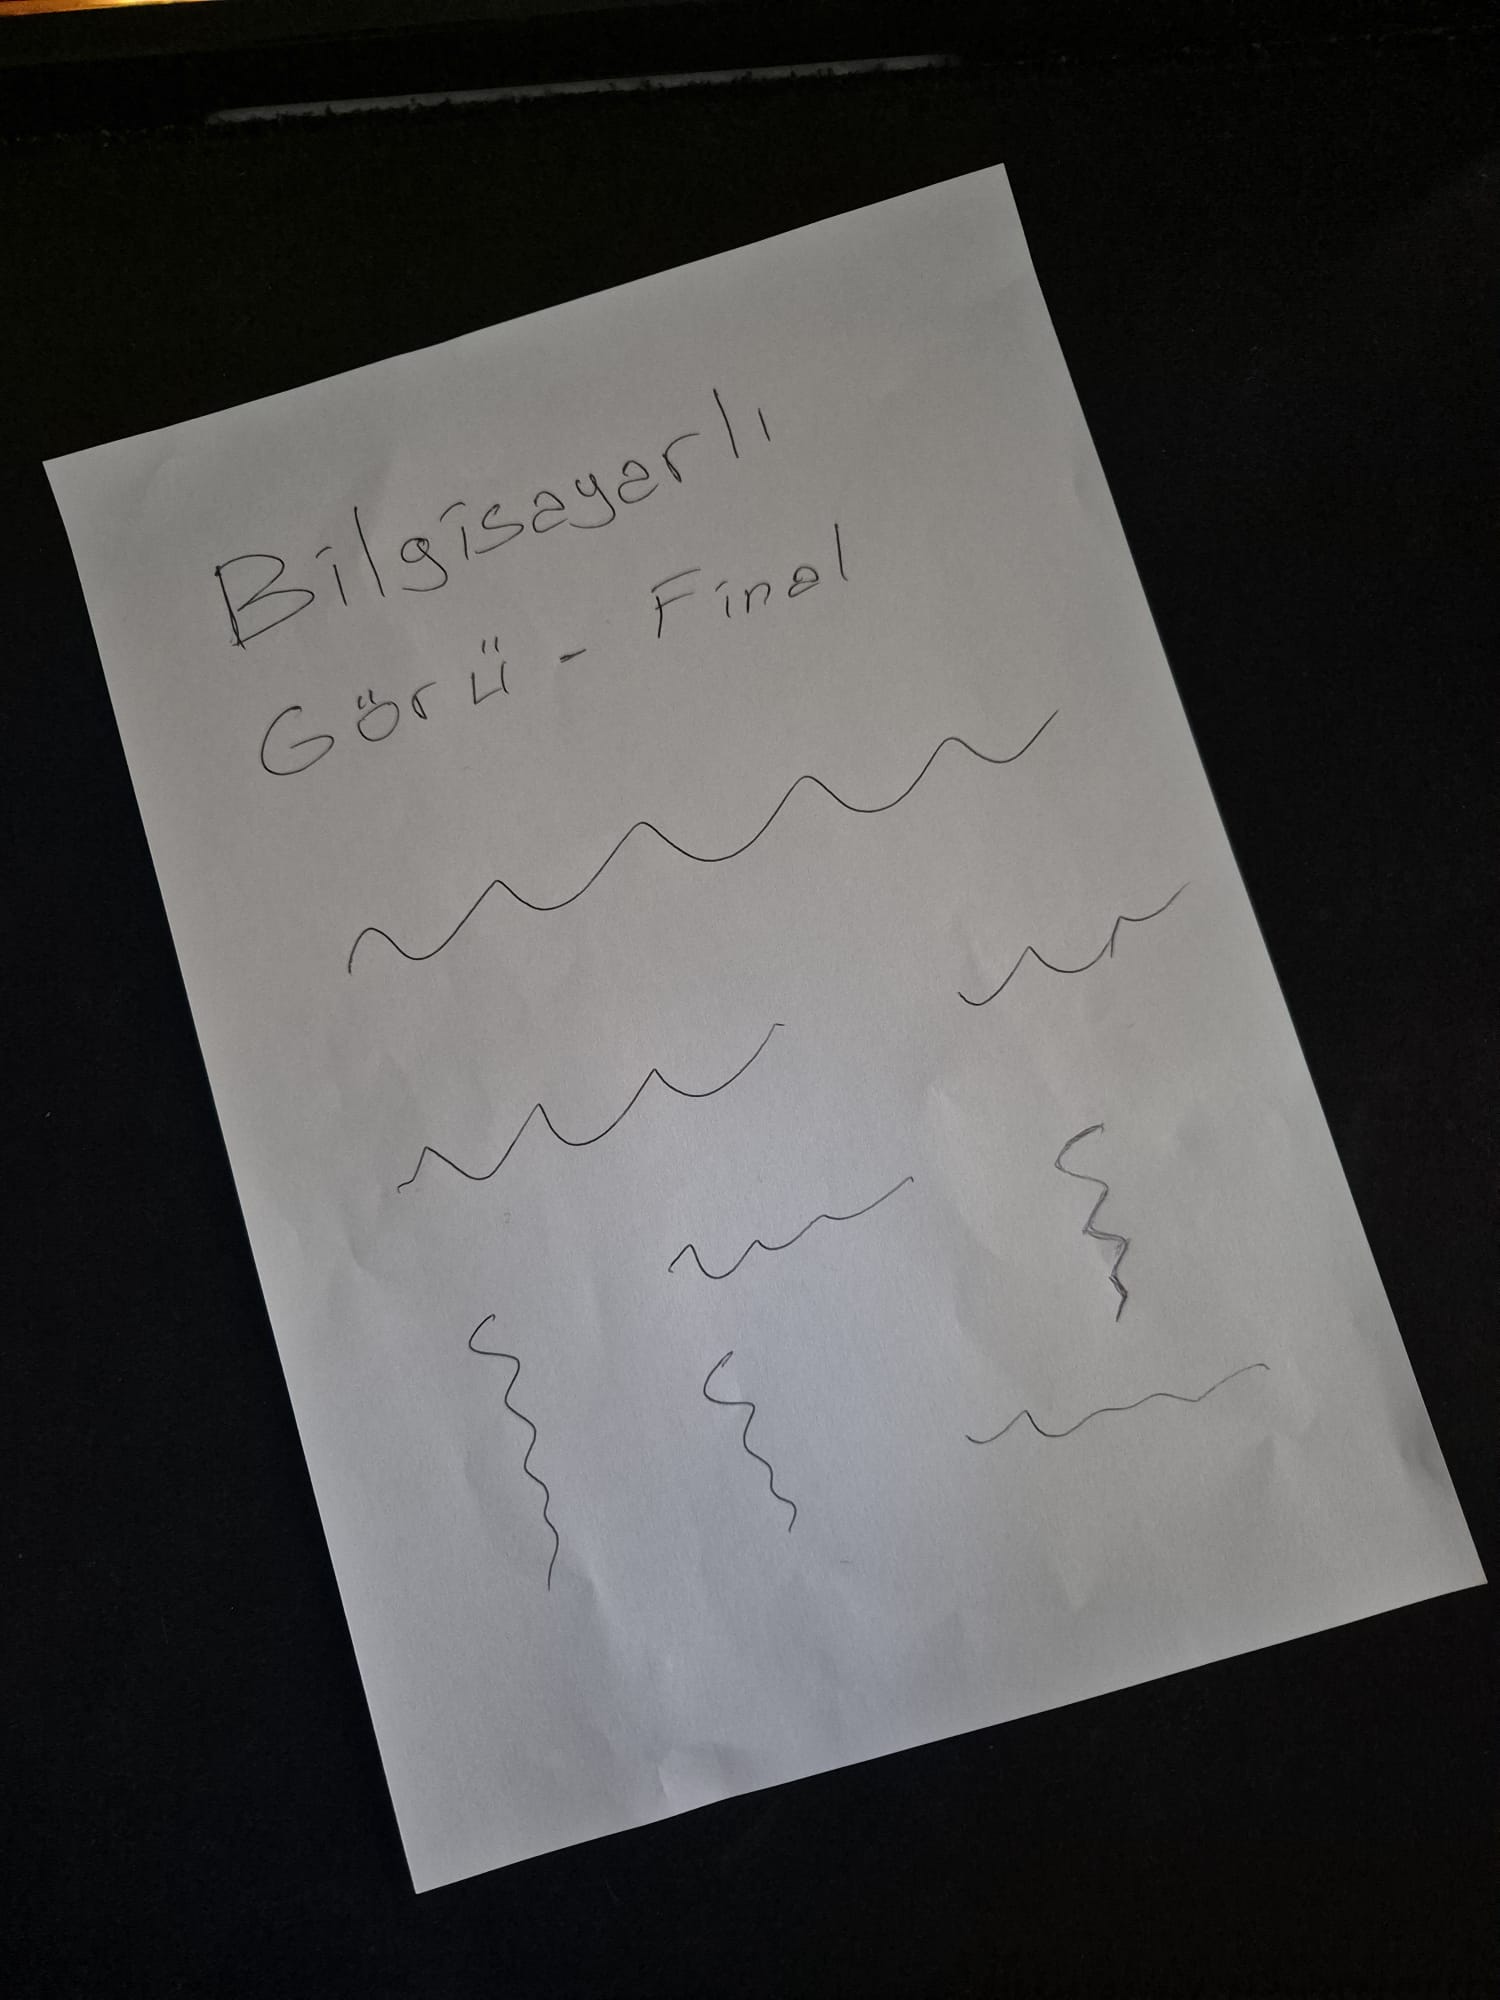 Bilgisayarlı
Görü - Final